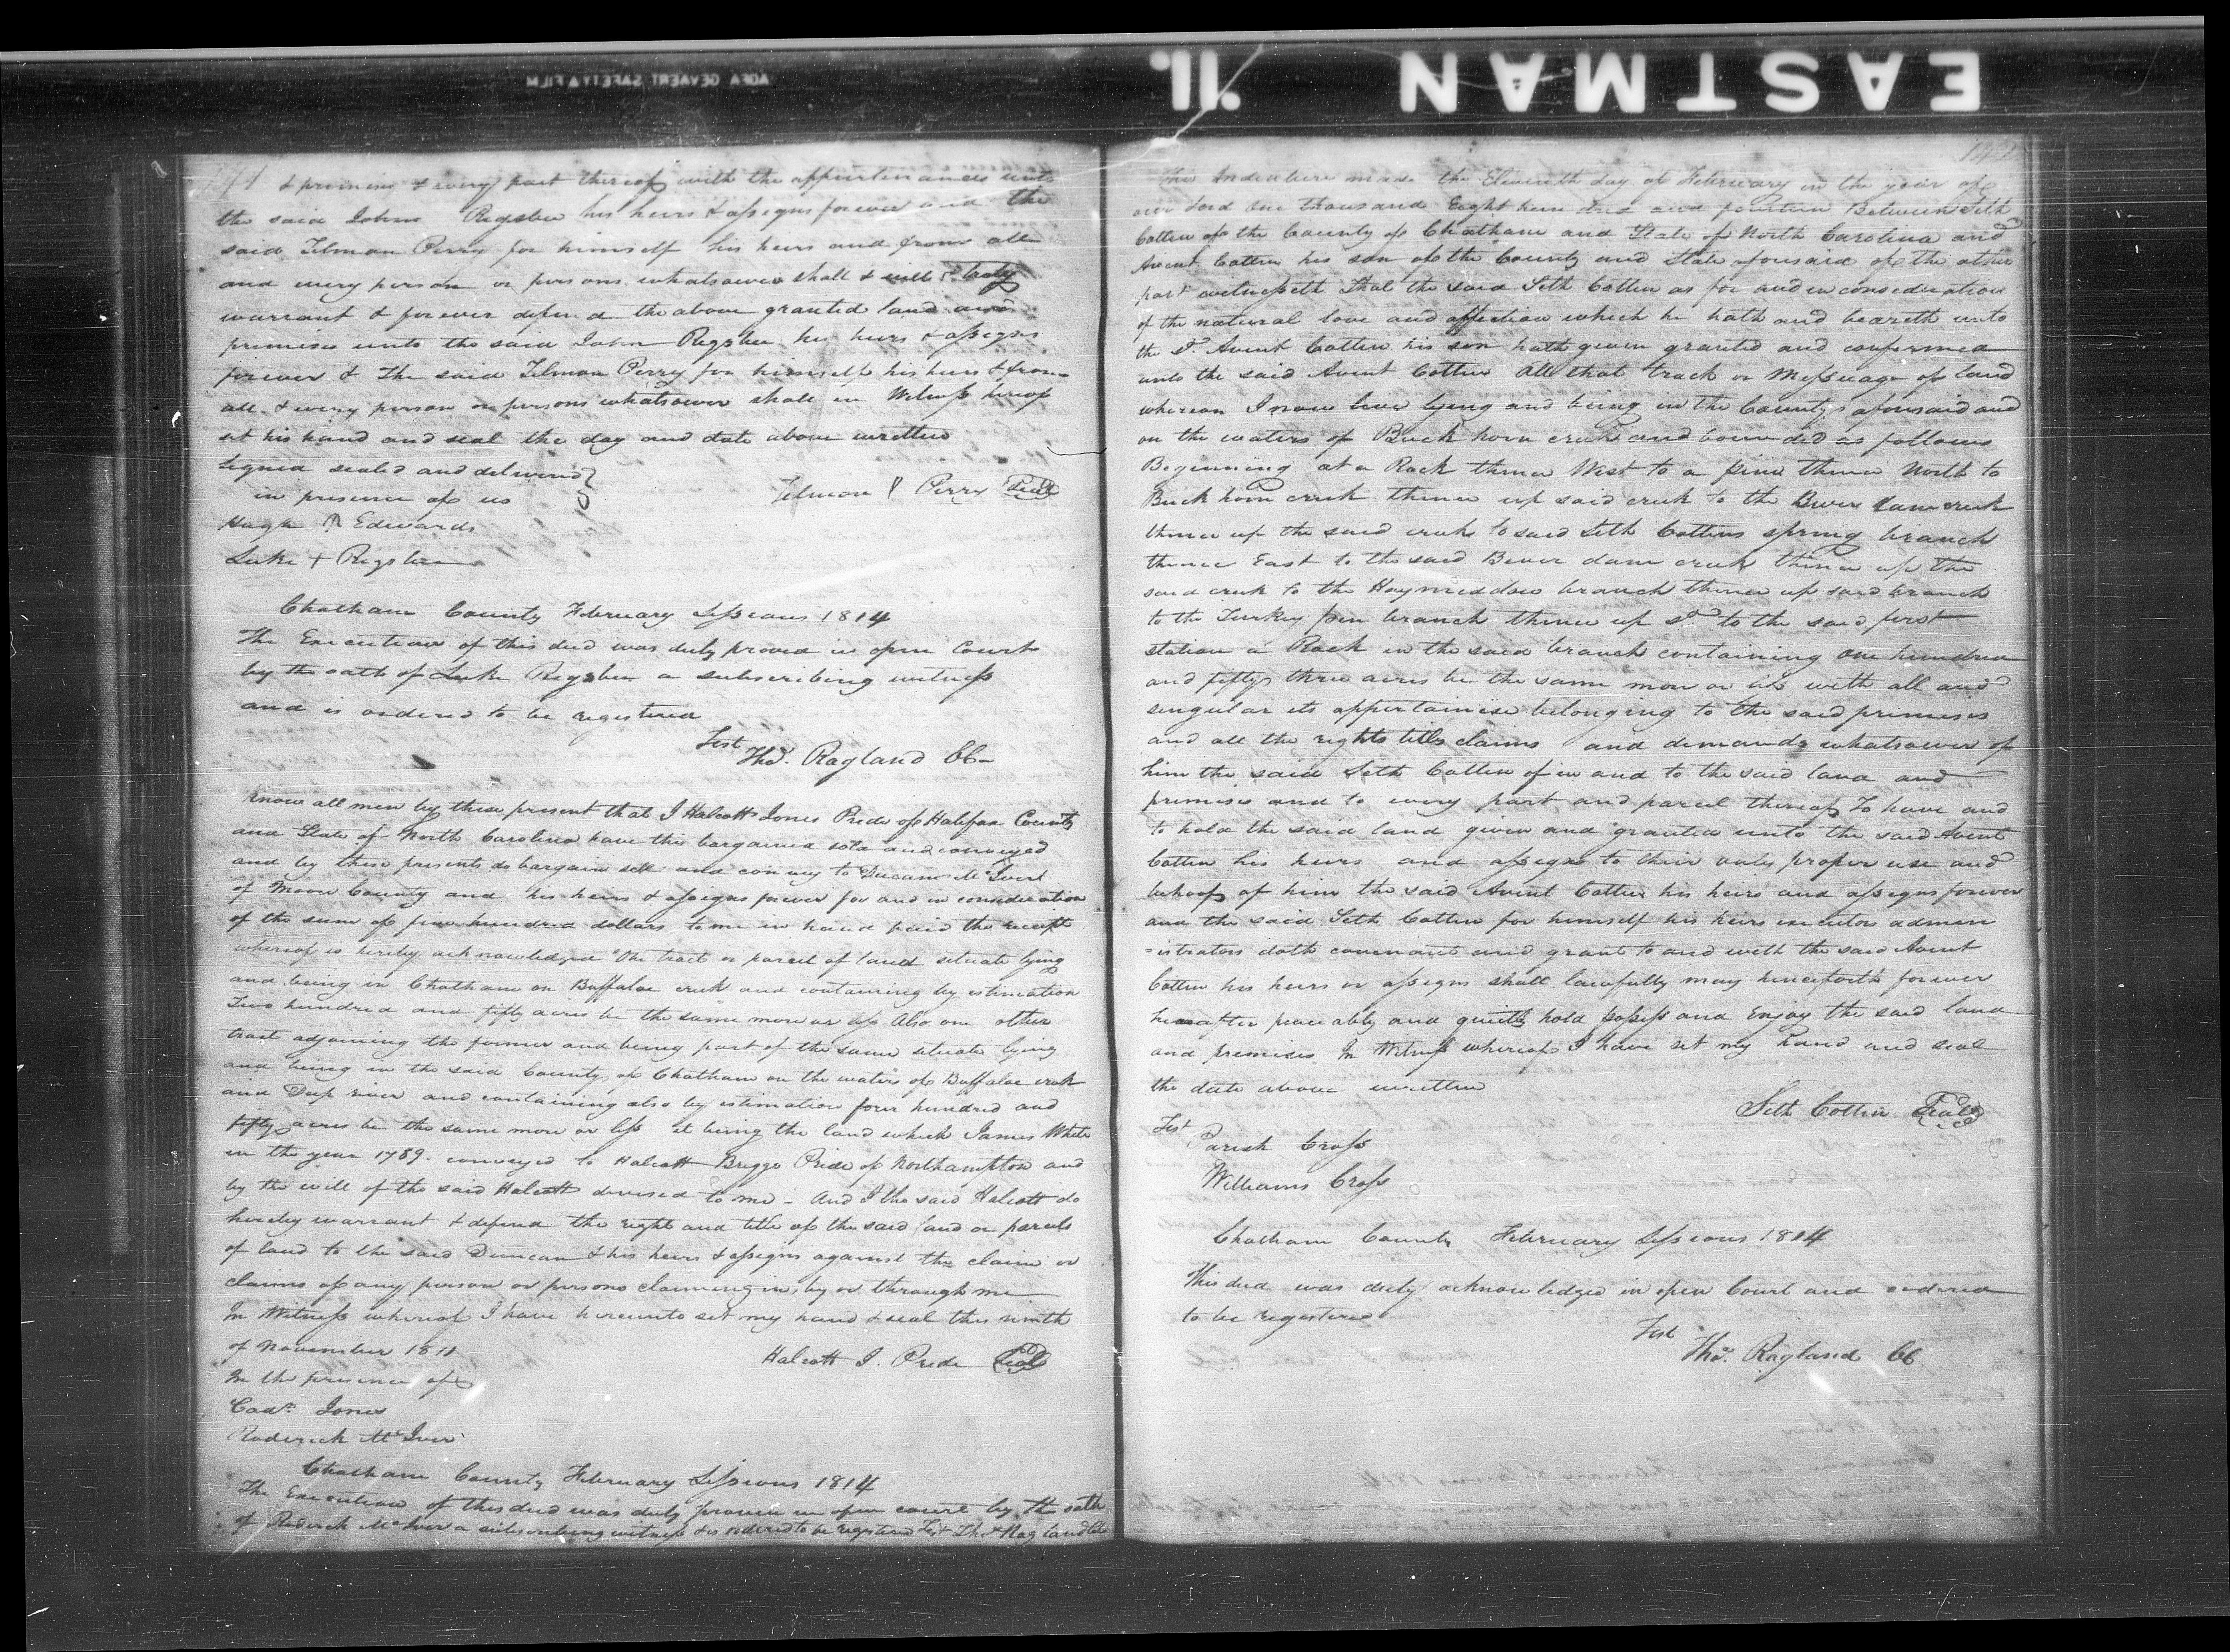 EASTMAN .11.
AGFA GEVAERT SAFETY FILM
141 & premises & every part thereof with the appurtenances unto
the said John Rigsbee his heirs & assigns forever and the
said Tilman Perry for himself his heirs and from all
and every person or persons whatsoever shall & will & truly
warrant & forever defend the above granted land and
premises unto the said John Rigsbee his heirs & assigns
forever & The said Tilman Perry for himself his heirs & from
all & every person or persons whatsoever shall in Witness hereof
set his hand and seal the day and date above written
Signed sealed and delivered
in presence of us
Tilman Perry Seal
Hugh Edwards
Luke + Rigsbee
Chatham County February Sessions 1814
The Execution of this deed was duly proved in open Court
by the oath of Luke Rigsbee a subscribing witness
and is ordered to be registered
Test
Thos. Ragland CC
Know all men by these present that I Halcott Jones Pride of Halifax County
and State of North Carolina have this bargained sold and conveyed
and by these presents do bargain sell and convey to Duncan McIver
of Moore County and his heirs & assigns forever for and in consideration
of the sum of five hundred dollars to me in hand paid the receipt
whereof is hereby acknowledged One tract or parcel of land situate lying
and being in Chatham on Buffaloe creek and containing by estimation
Two hundred and fifty acres be the same more or less Also one other
tract adjoining the former and being part of the same situate lying
and being in the said County of Chatham on the waters of Buffaloe creek
and Deep river and containing also by estimation four hundred and
fifty acres be the same more or less it being the land which James White
in the year 1789. conveyed to Halcott Briggs Pride of Northampton and
by the will of the said Halcott devised to me - And I the said Halcott do
hereby warrant & defend the right and title of the said land or parcels
of land to the said Duncan & his heirs & assigns against the claim or
claims of any person or persons claiming in, by or through me
In Witness whereof I have hereunto set my hand & seal this ninth
of November 1811
Halcott J. Pride Seal
In the presence of
Cadr. Jones
Roderick McIver
Chatham County February Sessions 1814
The Execution of this deed was duly proven in open court by the oath
of Roderick McIver a subscribing witness & is ordered to be registered Test Thos Ragland CC
This Indenture made the Eleventh day of February in the year of
our Lord One thousand Eight hundred and fourteen Between Seth
Cotten of the County of Chatham and State of North Carolina and
Avent Cotten his son of the County and State aforesaid of the other
part witnesseth That the said Seth Cotten as for and in consideration
of the natural love and affection which he hath and beareth unto
the sd. Avent Cotten his son hath given granted and confirmed
unto the said Avent Cotten All that track or Messuage of land
whereon I now live lying and being in the County aforesaid and
on the waters of Buck horn creek and bounded as follows
Beginning at a Rock thence West to a pine thence North to
Buck horn creek thence up said creek to the Bever dam creek
thence up the said creek to said Seth Cottens spring branch
thence East to the said Bever dam creek thence up the
said creek to the Haymeddow branch thence up said branch
to the Turkey pen branch thence up sd. to the said first
station a Rock in the said branch containing one hundred
and fifty three acres be the same more or less with all and
singular its appertainise belonging to the said premises
and all the rights titles claims and demands whatsoever of
him the said Seth Cotten of in and to the said land and
premises and to every part and parcel thereof To have and
to hold the said land given and granted unto the said Avent
Cotten his heirs and assigns to their only proper use and
behoof of him the said Avent Cotten his heirs and assigns forever
and the said Seth Cotten for himself his heirs executors admin
=istrators doth covenant and grant to and with the said Avent
Cotten his heirs or assigns shall lawfully may henceforth forever
hereafter peaceably and quietly hold possess and Enjoy the said land
and premises In Witness whereof I have set my hand and seal
the date above written
Seth Cotten Seal
Test
Parish Cross
Williams Cross
Chatham County February Sessions 1814
This deed was duly acknowledged in open Court and ordered
to be registered
Test
Thos. Ragland CC